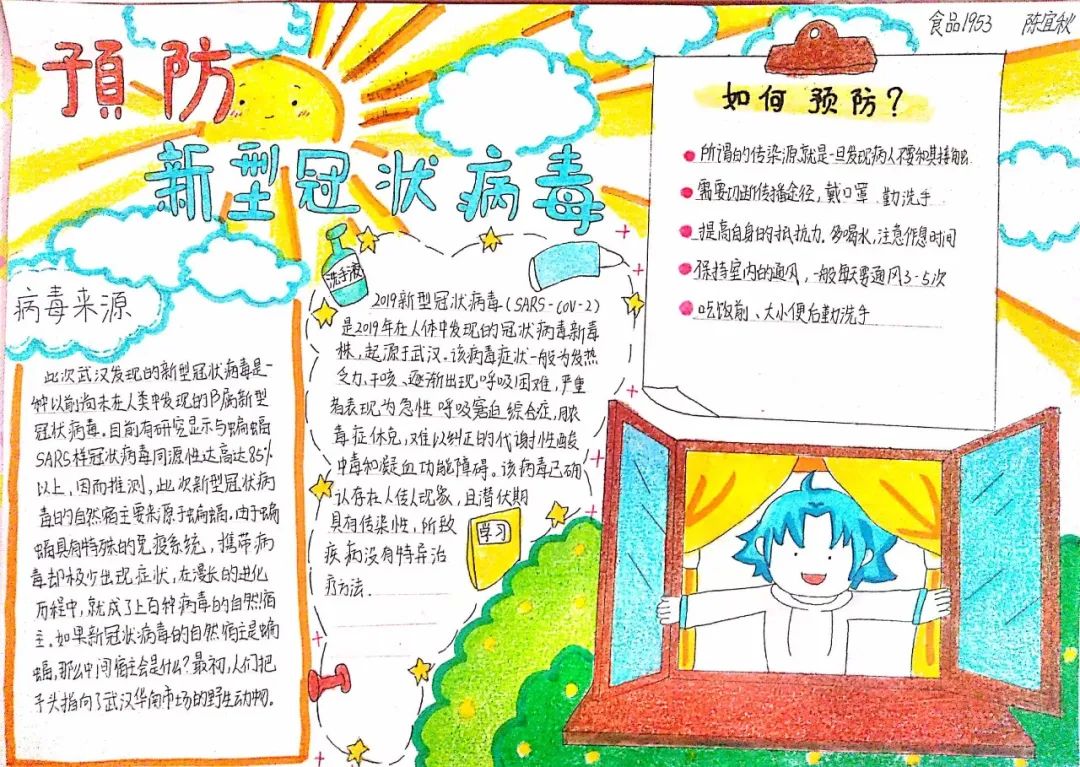 食品1953 陈宜秋
預防
新型冠状病毒
病毒来源
此次武汉发现的新型冠状病毒是一
种以前尚未在人类中发现的β属新型
冠状病毒。目前有研究显示与蝙蝠
SARS样冠状病毒同源性达高达85%
以上,因而推测,此次新型冠状病
毒的自然宿主要来源于蝙蝠。由于蝙
蝠具有特殊的免疫系统,携带病
毒却极少出现症状,在漫长的进化
历程中,就成了上百种病毒的自然宿
主。如果新冠状病毒的自然宿主是蝙
蝠,那么中间宿主会是什么?最初,人们把
手头指向了武汉华南市场的野生动物。
洗手液
2019新型冠状病毒(SARS-COV-2)
是2019年在人体中发现的冠状病毒新毒
株,起源于武汉。该病毒症状一般为发热
乏力、干咳、逐渐出现呼吸困难,严重
者表现为急性呼吸窘迫综合症、脓
毒症休克,难以纠正的代谢性酸
中毒和凝血功能障碍。该病毒已确
认存在人传人现象,且潜伏期
具有传染性,所致
疾病没有特异治
疗方法.
学习
如何预防?
所谓的传染源就是一旦发现病人不要和其接触.
需要切断传播途径,戴口罩、勤洗手
提高自身的抵抗力.多喝水,注意作息时间
保持室内的通风,一般每天要通风3-5次
吃饭前、大小便后勤洗手